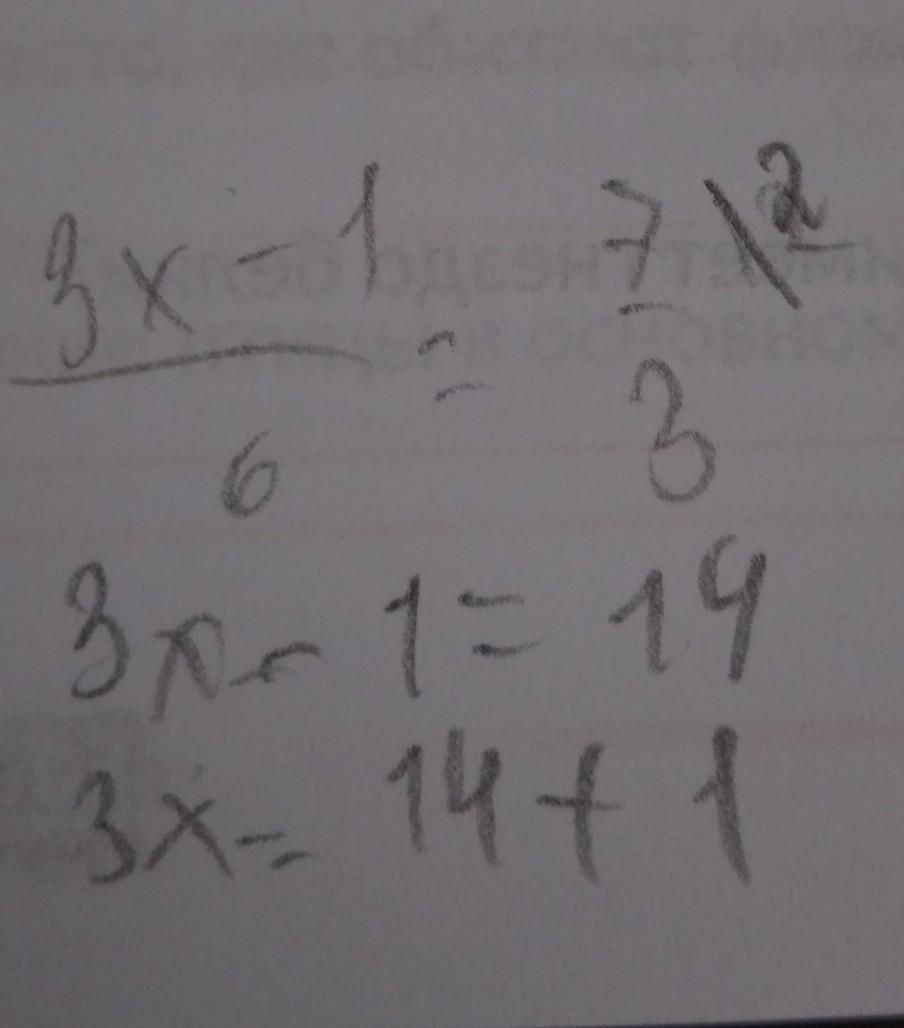 3x - 1 / 6 = 7\2 / 3
3x - 1 = 14
3x = 14 + 1